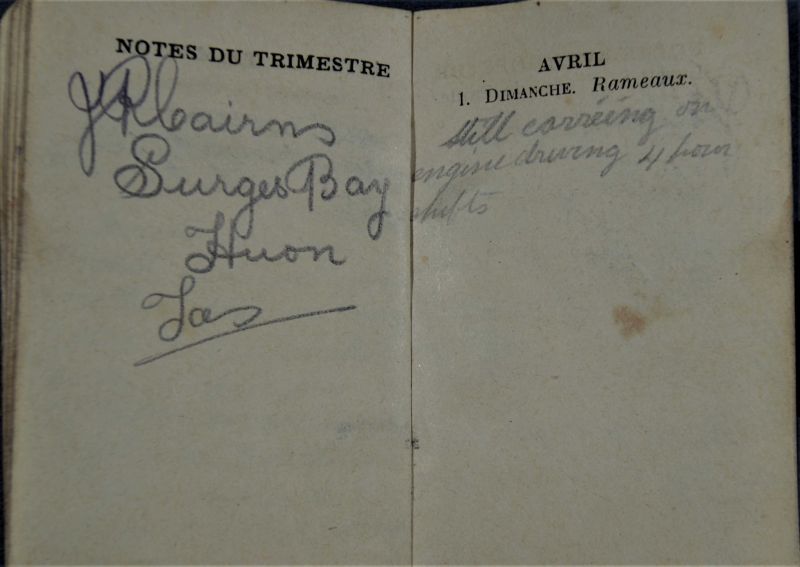 NOTES DU TRIMESTRE
J R Cairns
Surges Bay
Huon
Tas
AVRIL
1. DIMANCHE. Rameaux.
still carréing on
engine driving 4 hour
shifts